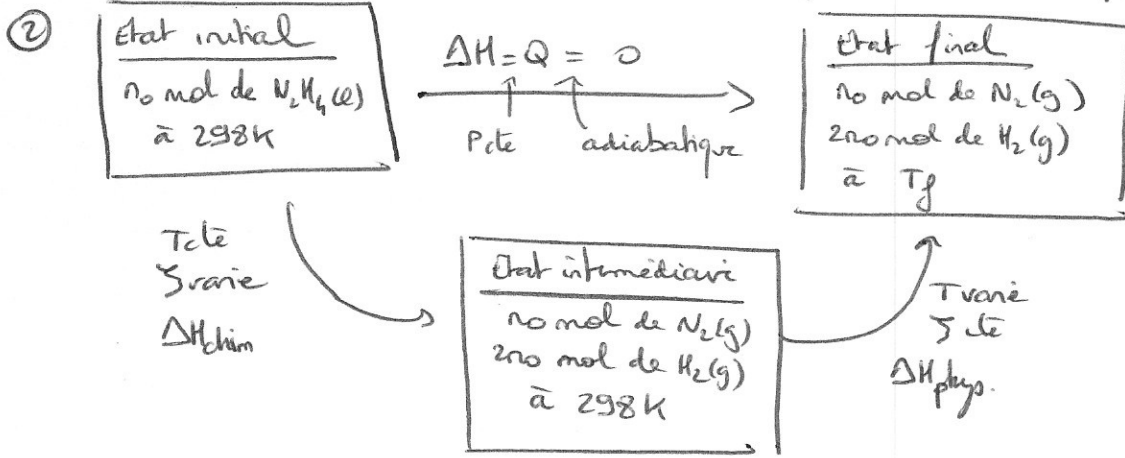 ②
Etat initial
n₀ mol de N₂H₄(l)
à 298K
ΔH = Q = 0
Pcte
adiabatique
Etat final
n₀ mol de N₂(g)
2n₀ mol de H₂(g)
à Tf
Tcte
ξ varie
ΔHchim
Etat intermédiaire
n₀ mol de N₂(g)
2n₀ mol de H₂(g)
à 298K
T varie
ξ cte
ΔHphys.